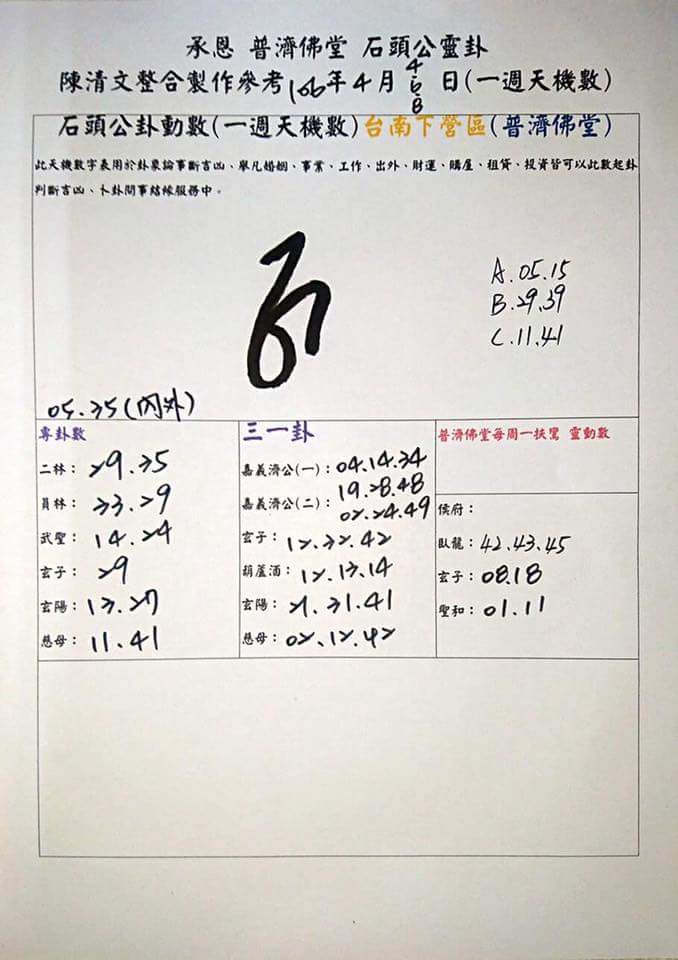 承恩 普濟佛堂 石頭公靈卦
陳清文整合製作參考106年4月4.6.8日(一週天機數)
石頭公卦動數(一週天機數)台南下營區(普濟佛堂)
此天機數字表用於卦象論事斷吉凶、舉凡婚姻、事業、工作、出外、財運、購屋、租賃、投資皆可以此數起卦
判斷吉凶、卜卦問事結緣服務中。
A.05.15
B.29.39
C.11.41
05.35(內外)
專卦數
二林：29.35
員林：33.29
武聖：14.24
玄子：29
玄陽：13.27
慈母：11.41
三一卦
嘉義濟公(一)：04.14.34
嘉義濟公(二)：19.28.48
02.24.49
玄子：12.32.42
葫蘆酒：12.13.14
玄陽：21.31.41
慈母：02.12.42
普濟佛堂每周一扶鸞 靈動數
侯府：
臥龍：42.43.45
玄子：08.18
聖和：01.11